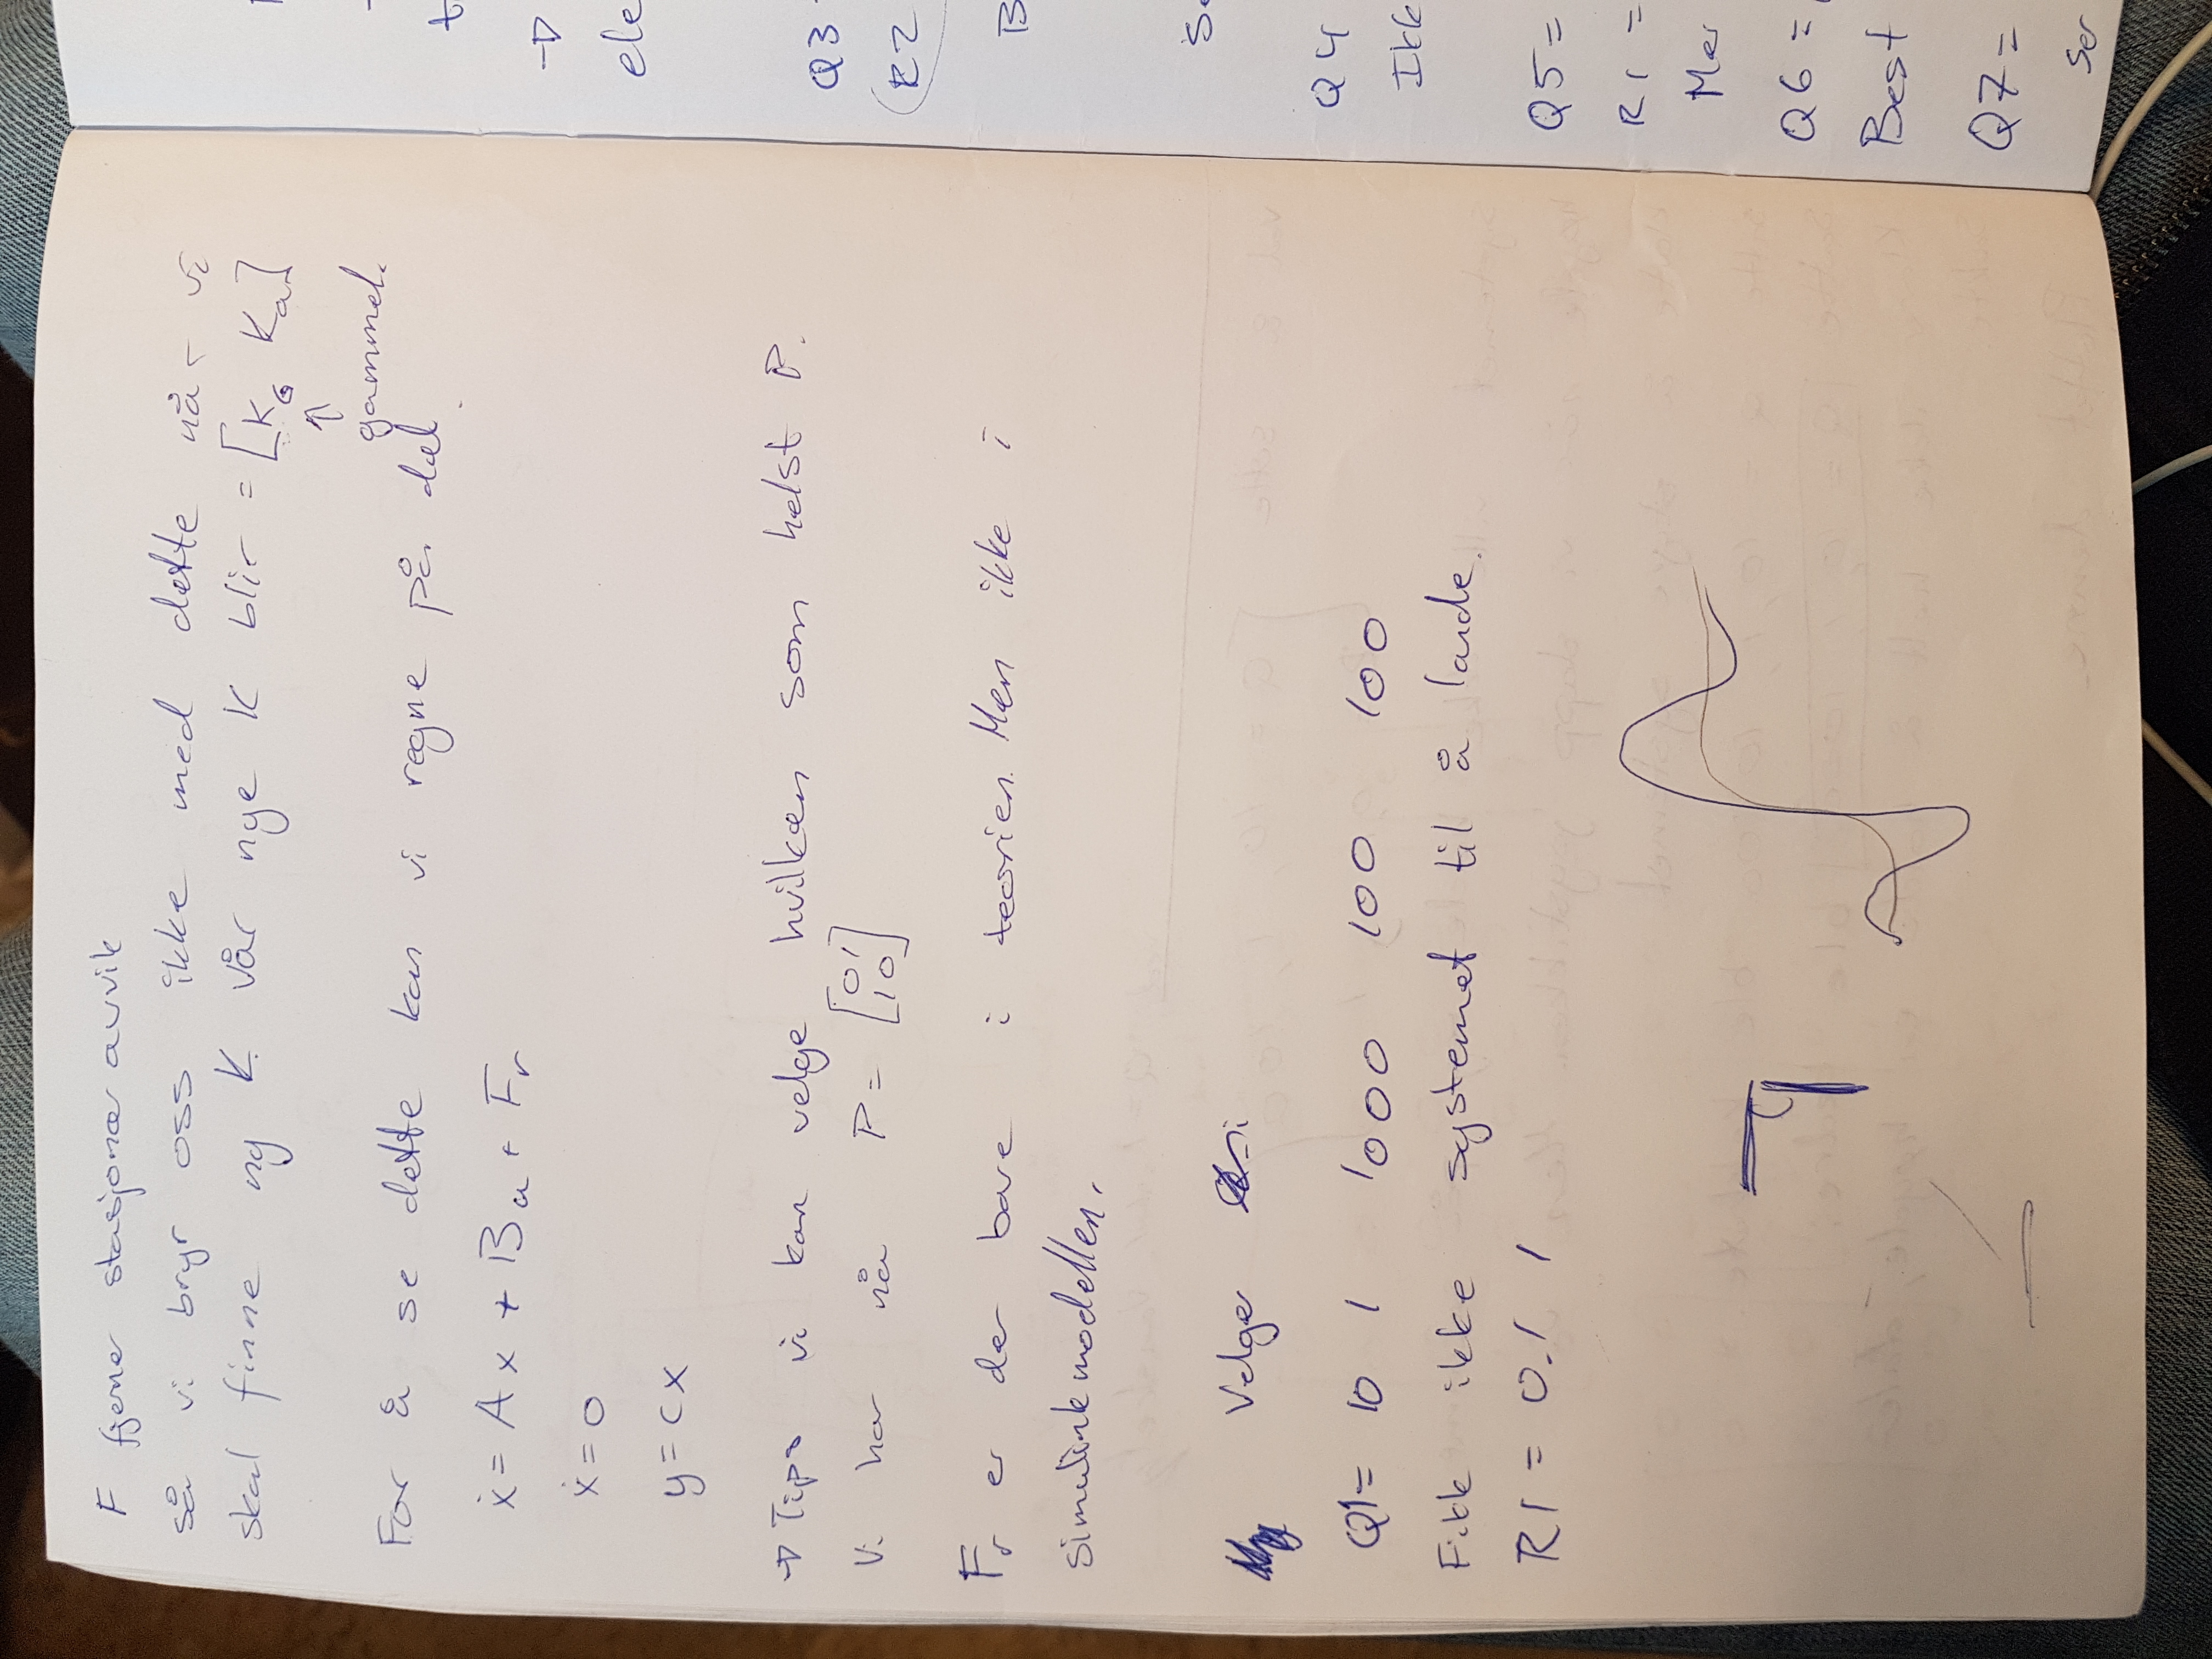 F fjerner stasjonær avvik
så vi bryr oss ikke med dette når vi
skal finne ny K. Vår nye K blir = [K₀ Ka]
↑
gammel.
For å se dette kan vi regne på det.
ẋ = Ax + Bu + Fr
ẋ = 0
y = Cx
→ Tips vi kan velge hvilken som helst P.
Vi har nå P = [01
10]
Fr er der bare i teorien. Men ikke i
simulinkmodellen.
Velger
Q1= 10 1 1000 100 100
Fikk ikke systemet til å lande.
R1 = 0.1 1
→
ele
Q3
R2
B
Q4
Ikk
Q5 =
R1 =
Mer
Q6 =
Best
Q7 =
Ser